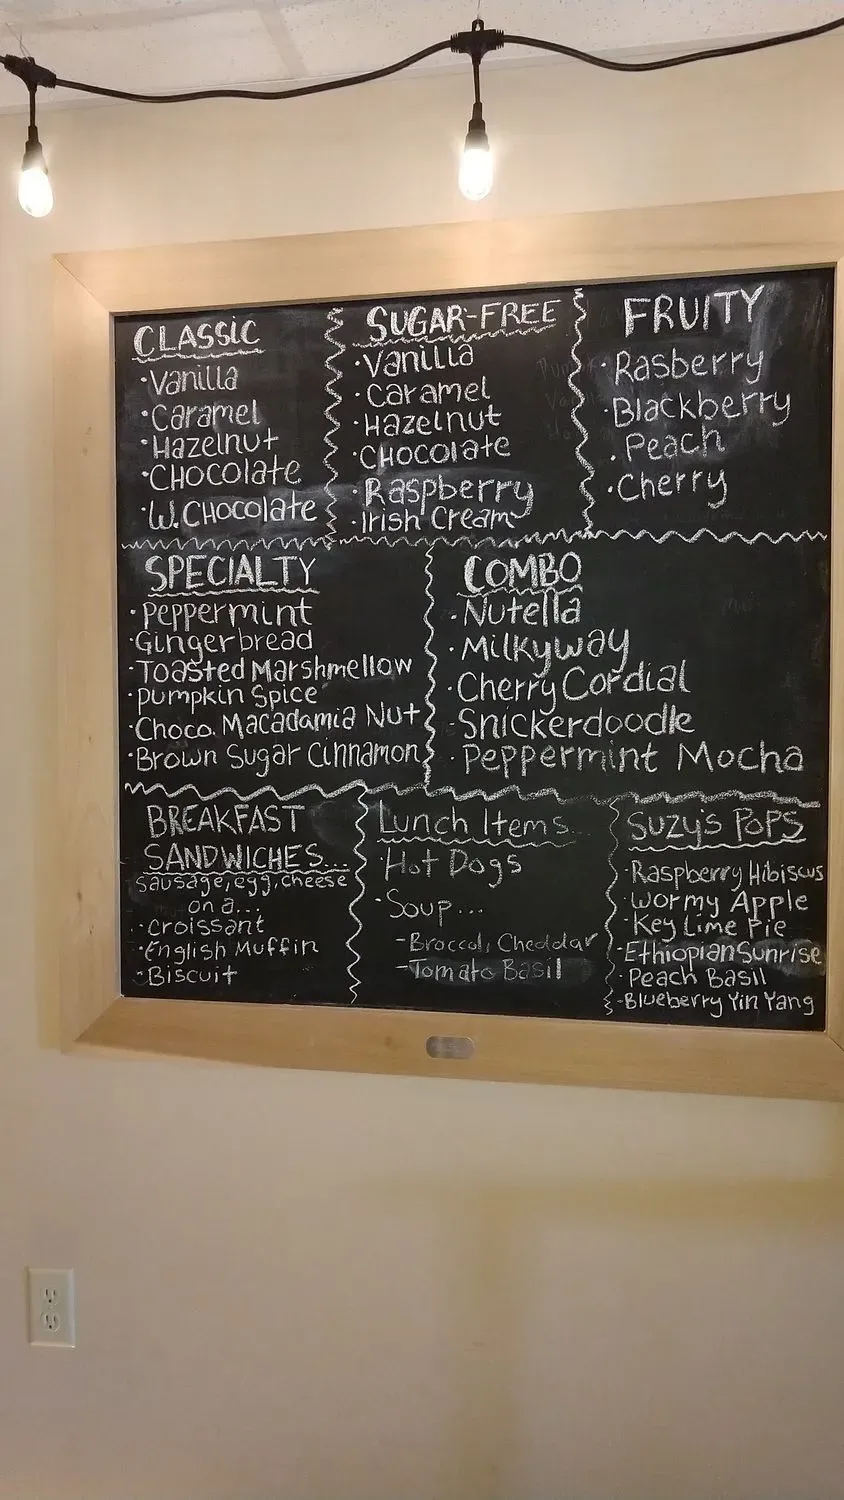 CLASSIC
·Vanilla
·Caramel
·Hazelnut
·CHOCOLATE
·W.CHOCOLATE
SUGAR-FREE
·Vanilla
·Caramel
·Hazelnut
·CHOCOLATE
·Raspberry
·Irish Cream
FRUITY
·Rasberry
·Blackberry
·Peach
·Cherry
SPECIALTY
·Peppermint
·Gingerbread
·Toasted Marshmellow
·Pumpkin Spice
·Choco. Macadamia Nut
·Brown Sugar Cinnamon
COMBO
·Nutella
·Milkyway
·Cherry Cordial
·Snickerdoodle
·Peppermint Mocha
BREAKFAST
SANDWICHES...
Sausage, egg, cheese
on a...
·Croissant
·English Muffin
·Biscuit
Lunch Items...
·Hot Dogs
·Soup...
-Broccoli Cheddar
-Tomato Basil
SUZY'S POPS
·Raspberry Hibiscus
·Wormy Apple
·Key Lime Pie
·Ethiopian Sunrise
·Peach Basil
·Blueberry Yin Yang